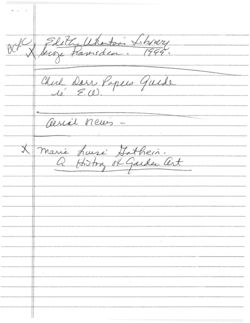 BCK Edith Wharton's Library
X George Ramsden. 1999.
Check Derr Papers Guide
 E.W.
aerial views -
X Marie Luise Gothein.
A History of Garden Art